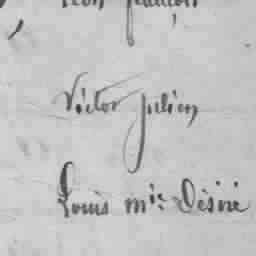 Victor Julien
Louis mie Désiré